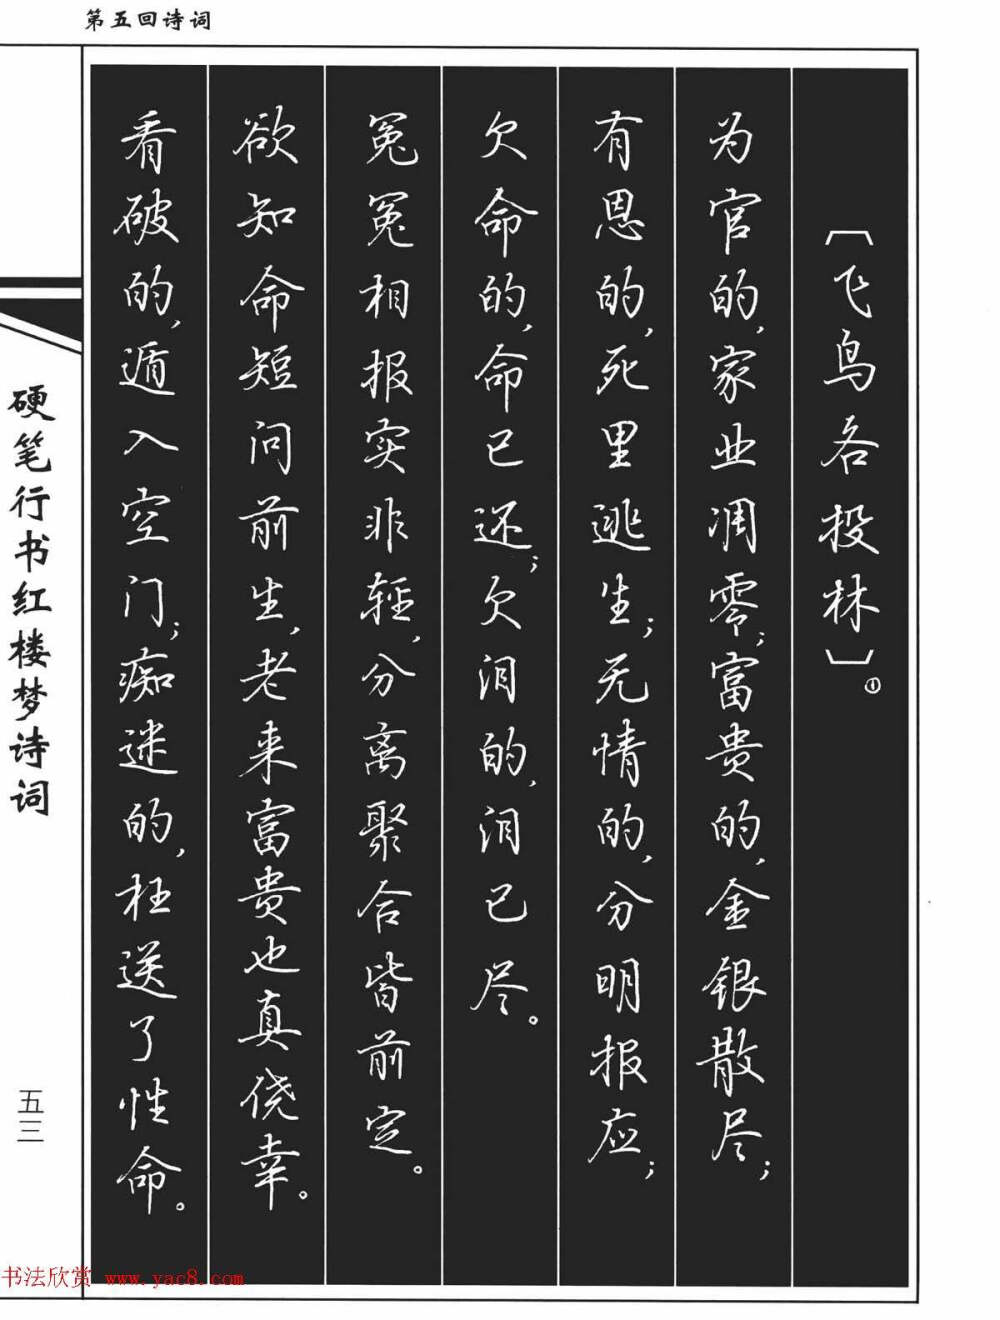 第五回诗词
〔飞鸟各投林〕。①
为官的，家业凋零；富贵的，金银散尽；
有恩的，死里逃生；无情的，分明报应；
欠命的，命已还；欠泪的，泪已尽。
冤冤相报实非轻，分离聚合皆前定。
欲知命短问前生，老来富贵也真侥幸。
看破的，遁入空门；痴迷的，枉送了性命。
硬笔行书红楼梦诗词
五三
书法欣赏 www.yac8.com